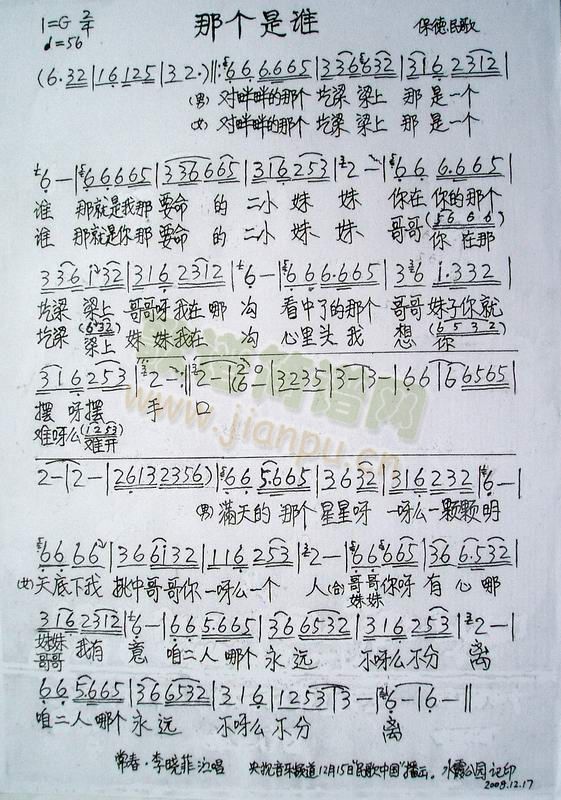 1=G 2/4 那个是谁 保德民歌
♩=56
(6·32|16125|32·)‖:66 6.665|336632|316 2312|
(男)对畔畔的那个 圪梁 梁上 那 是一个
(女)对畔畔的那个 圪梁 梁上 那 是一个
6—|66665|336665|316253|2—|66 6.665|
谁 那就是我那 要命 的 二小 妹 妹 你在 你的那个
谁 那就是你那 要命 的 二小 妹 妹 哥哥(56 6 6)你 在那
336 132|316 2312|6—|666.665|336 1.332|
圪梁 梁上 哥哥呀我在 哪 沟 看中了的那个 哥哥 妹子你就
圪梁 (632)梁上 妹 妹我在 沟 心里头我 想 (6532)你
316253|2—:‖2—|26 0|3235|3—|3—|66|66565|
摆 呀摆 手 口
难呀么(1253)难开
2—|2—|26132356)|66 5.665|3632|316232|6—|
(男)满天的 那个 星星呀 一呀么一颗颗明
66 66|366132|116253|2—|66665|366.532|
(女)天底下我 挑中哥哥你 一呀么一个 人(合)哥哥你呀 有 心 哪
妹妹
316 2312|6—|66 5.665|366532|316253|2—|
妹妹 我有 意 咱二人 哪个 永 远 不呀么不分 离
哥哥
66 5.665|366532|316|1253|3—|6—|6—‖
咱二人 哪个 永 远 不呀么 不分 离
常春·李晓菲演唱 央视音乐频道12月15日"民歌中国"播出。水霞公园记印
2008.12.17
简谱网
www.jianpu.cn